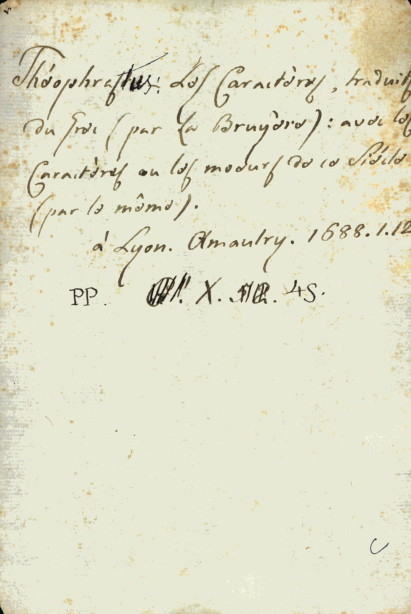 Théophrastus: Les Caractères, traduits
du grec (par La Bruyère): avec les
Caractères ou les moeurs de ce Siècle
(par le même).
à Lyon. Amaulry. 1688. 1. 12
PP. X. 45.